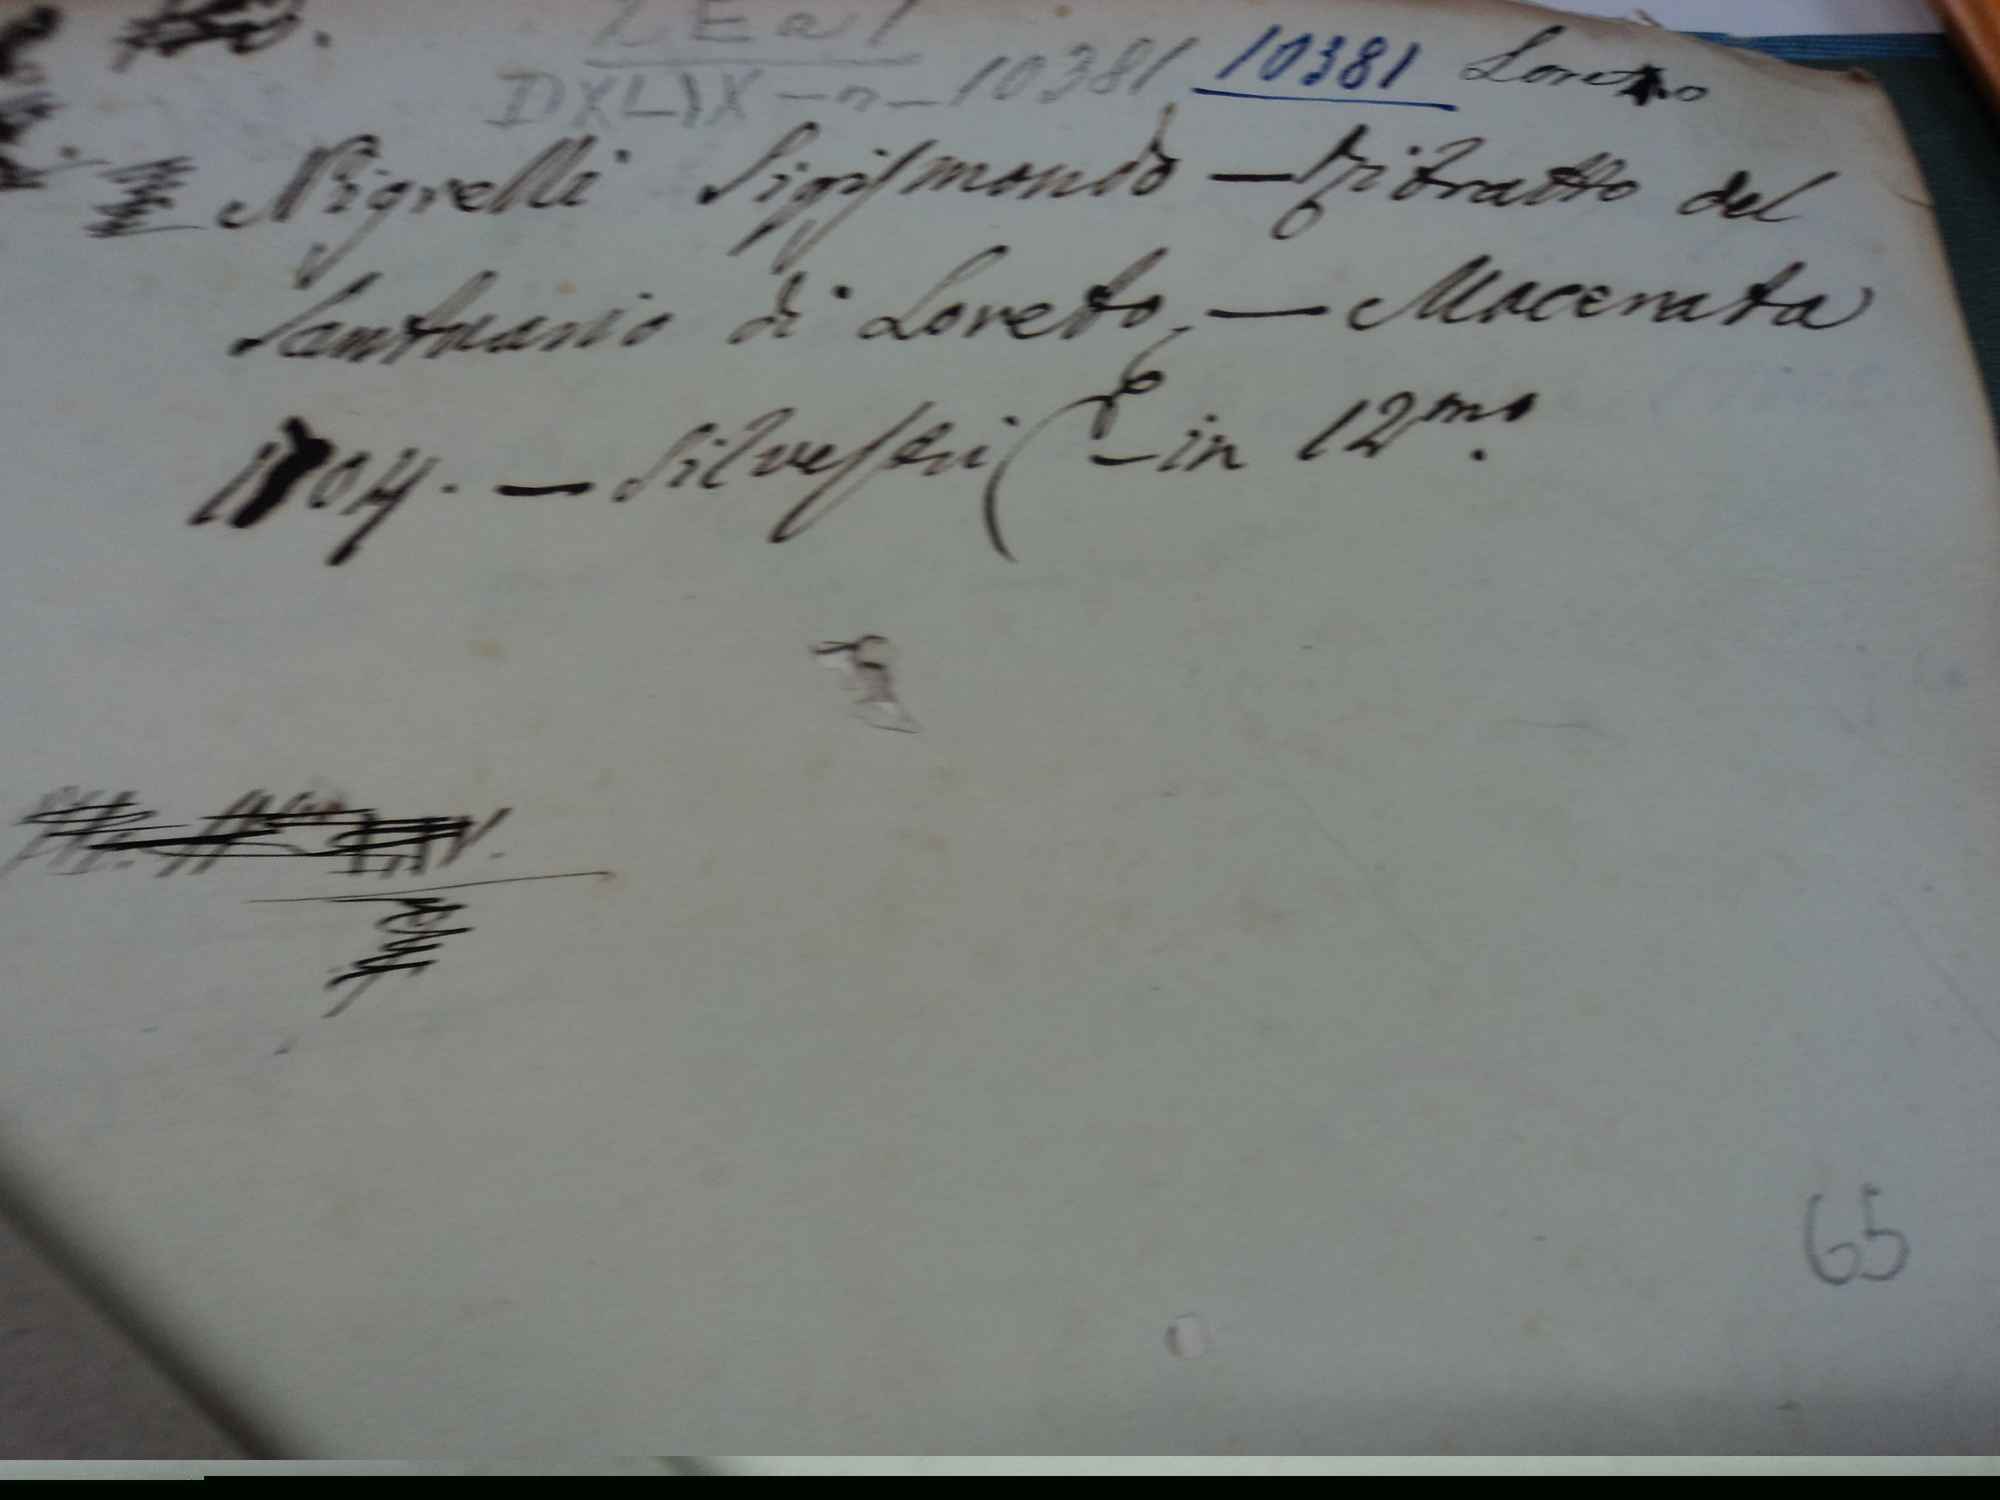 10381 10381 Loreto
Nigrelli Sigismondo — Ritratto del
Santuario di Loreto. — Macerata
1704. — Silvestri — in 12mo.
65